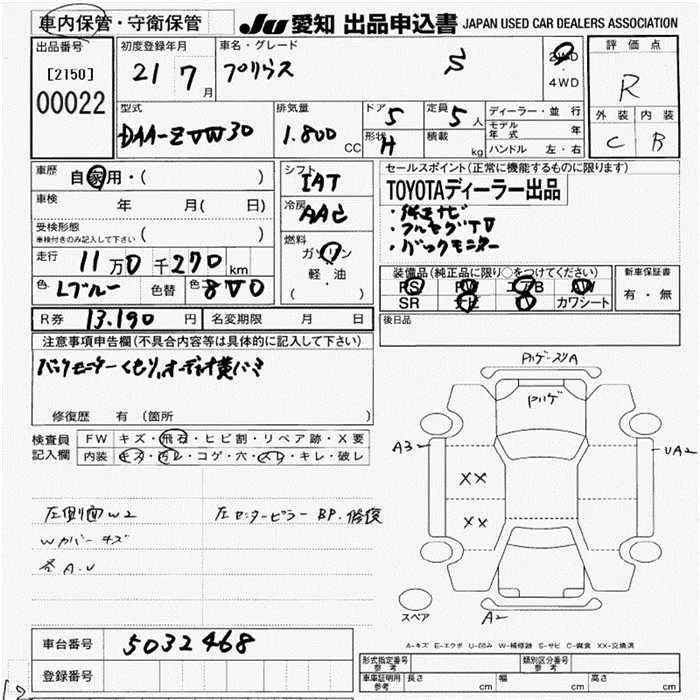 車内保管・守衛保管
JU 愛知 出品申込書 JAPAN USED CAR DEALERS ASSOCIATION
出品番号
[2150]
00022
初度登録年月
21 7 月
車名・グレード
プリウス S
2WD
・
4WD
評価点
R
外装 内装
C B
型式
DAA-ZVW30
排気量
1.800 CC
ドア 5
形状 H
定員 5 人
積載 kg
ディーラー・並行
モデル年式 年
ハンドル 左・右
車歴
自家用・( )
車検 年 月( 日)
受検形態
車検付きのみ記入して下さい ( )
走行 11万0千270km
色 Lブルー 色替 8V0
シフト
IAT
冷房
AAC
燃料
ガソリン
軽・油
( )
セールスポイント(正常に機能するものに限ります)
TOYOTAディーラー出品
・純正ナビ
・フルセグTV
・バックモニター
装備品(純正品に限り○をつけてください)
PS PW エアB AW
SR ナビ カワシート
新車保証書
有・無
R券 13.190円 名変期限 月 日
後日品
注意事項申告欄(不具合内容等は具体的に記入して下さい)
バックモニターくもり,オーディオ黄バミ
修復歴 有(箇所
検査員
記入欄
FW キズ・飛石・ヒビ割・リペア跡・X要
内装 キズ・汚レ・コゲ・穴・スレ・キレ・破レ
左側面W2
Wカバーキズ
各A.U
左センターピラーBP.修復
PハゲスリA
Pハゲ
A3
UA2
XX
XX
スペア
A2
A-キズ E-エクボ U-凹み W-補修跡 S-サビ C-腐食 XX-交換済
車台番号 5032468
登録番号
形式指定番号
参考
類別区分番号
参考
車庫証明用
参考
長さ cm 幅 cm 高さ cm